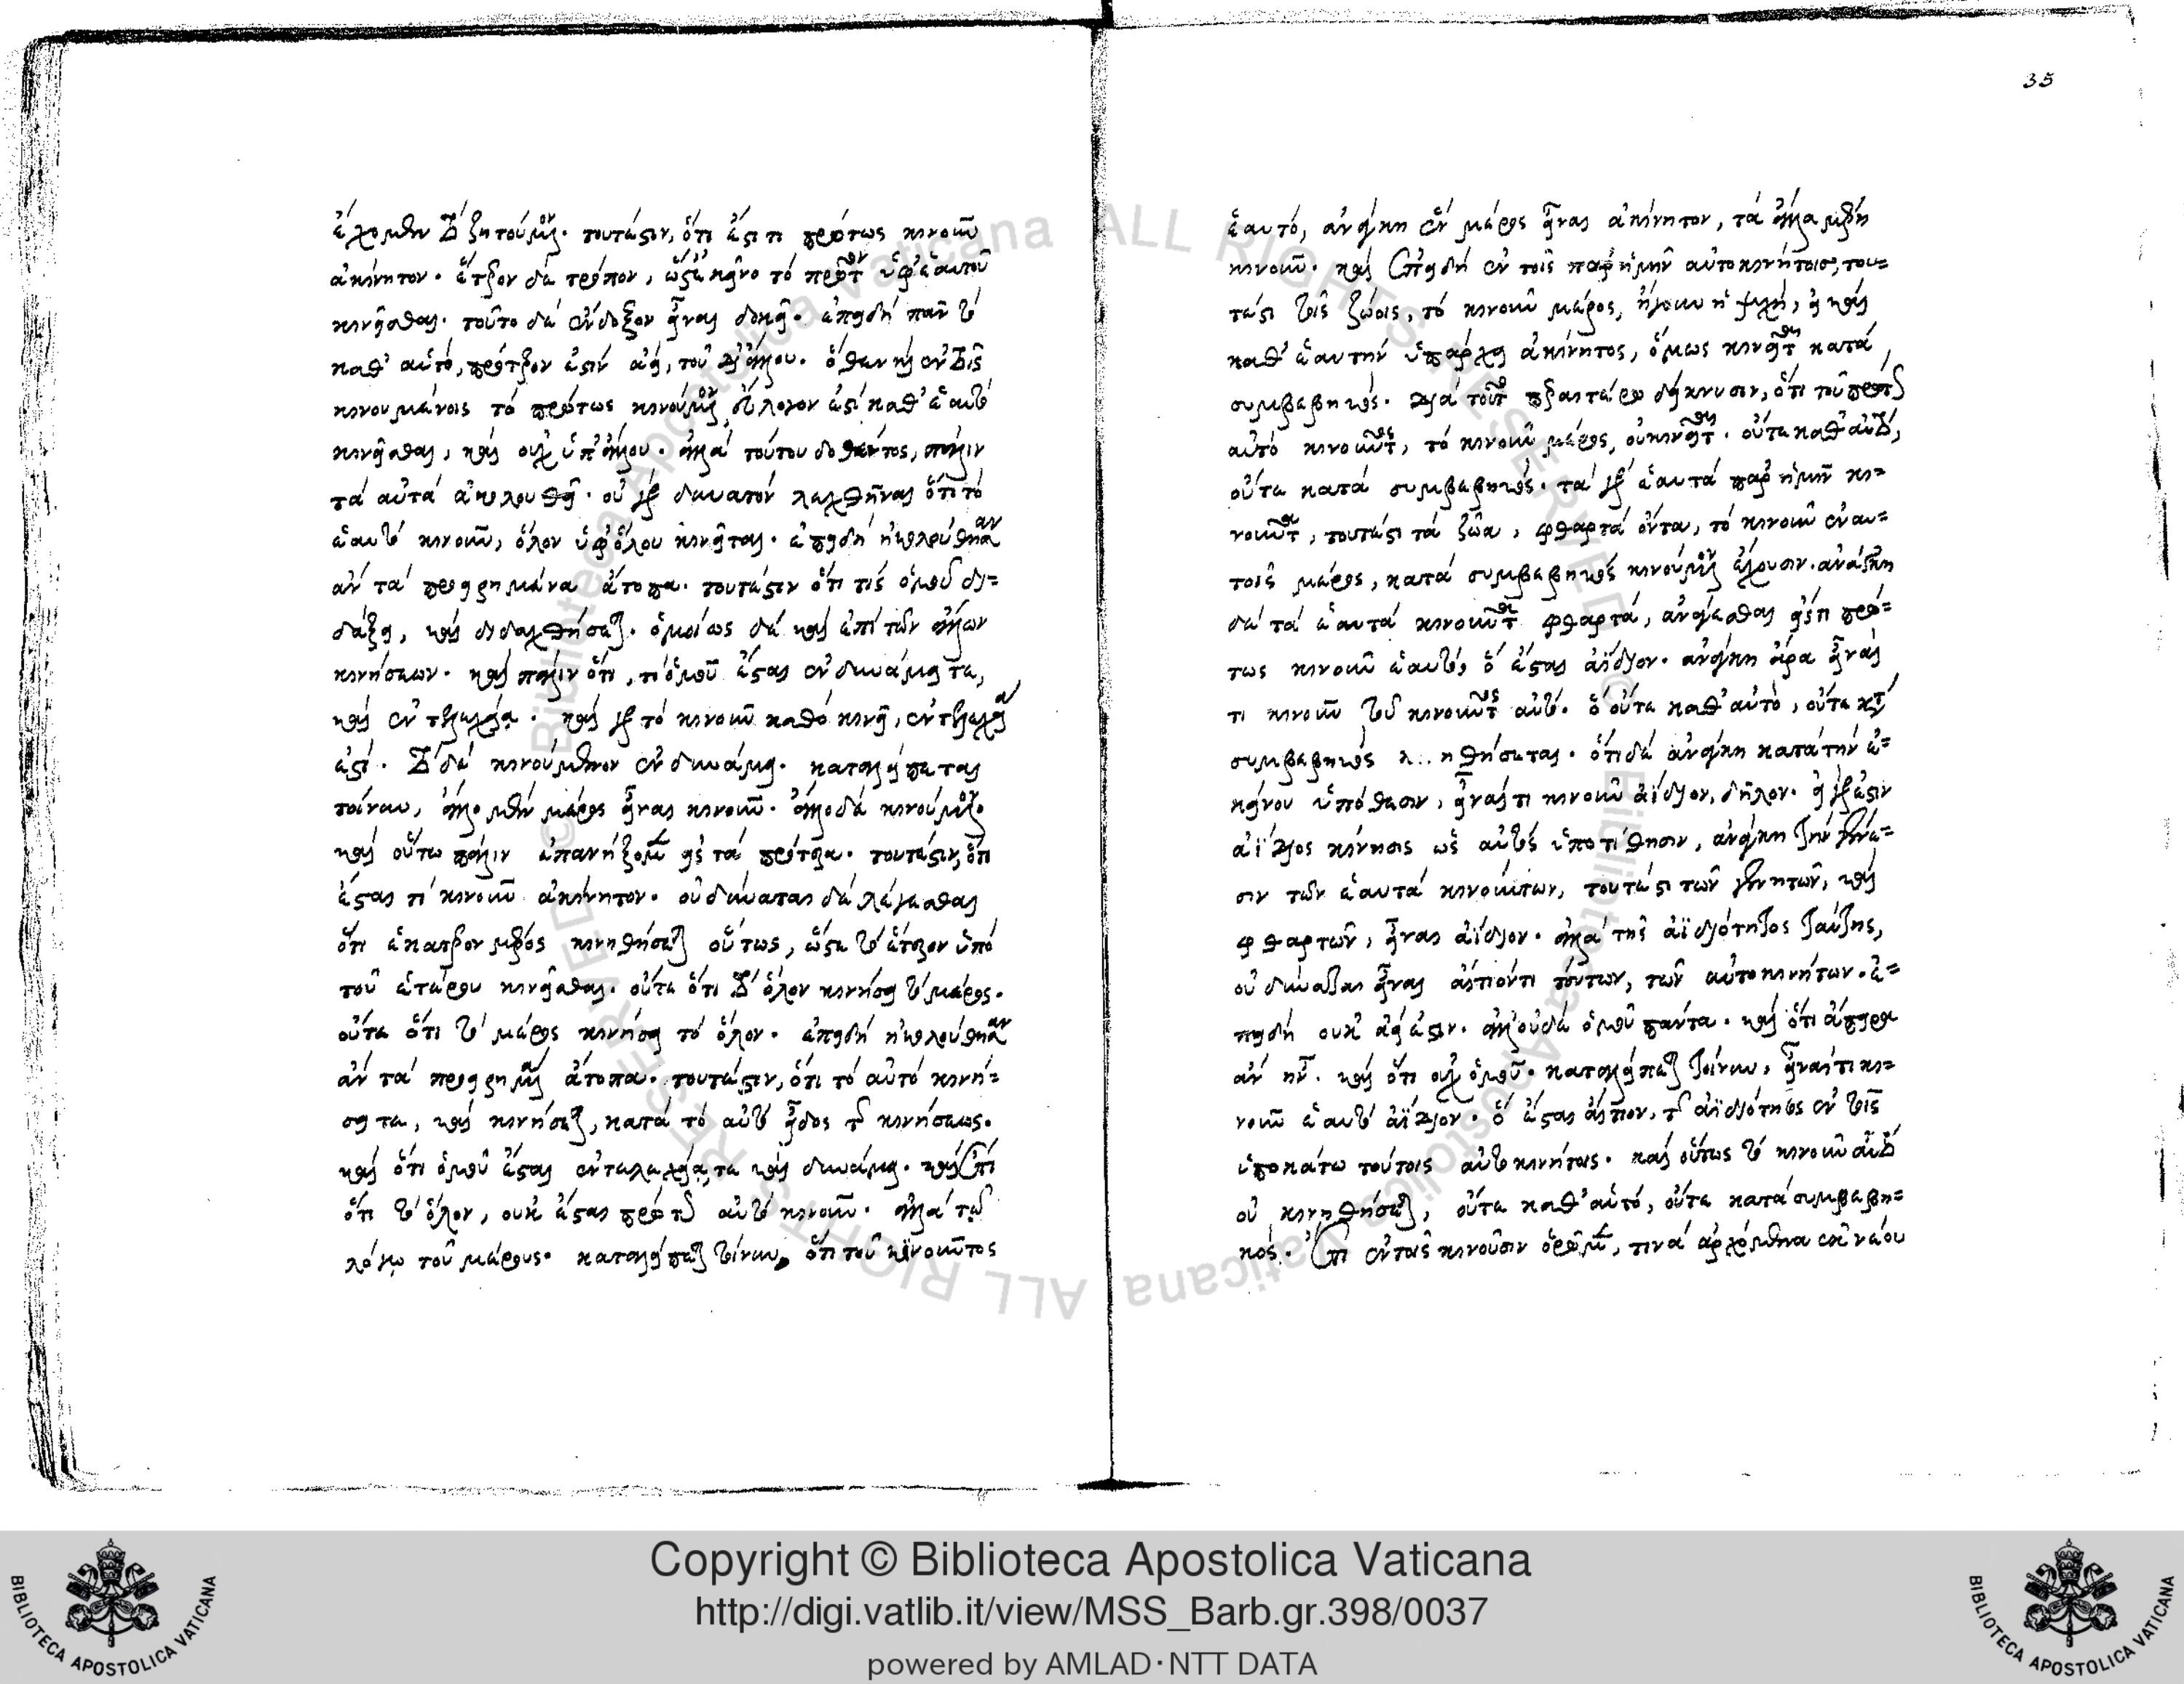 ἔχομεν τὸ ζητούμενον. τουτέστιν, ὅτι ἔστι τι πρώτως κινοῦν
ἀκίνητον. ἕτερον δὲ τρόπον, ὥστε κἀκεῖνο τὸ πρῶτον ὑφ' ἑαυτοῦ
κινεῖσθαι. τοῦτο δὲ ἔνδοξον εἶναι δοκεῖ. ἐπειδὴ πᾶν τὸ
καθ' αὑτό, πρότερον ἐστὶν ἀεί, τοῦ δι' ἄλλου. ὅθεν καὶ ἐν τοῖς
κινουμένοις τὸ πρώτως κινούμενον, εὔλογον ἐστὶ καθ' ἑαυτὸ
κινεῖσθαι, καὶ οὐχ ὑπ' ἄλλου. ἀλλὰ τούτου δοθέντος, πάλιν
τὰ αὐτὰ ἀκολουθεῖ. οὐ γὰρ δυνατὸν λεχθῆναι ὅτι τὸ
ἑαυτὸ κινοῦν, ὅλον ὑφ' ὅλου κινεῖται. ἐπειδὴ ἠκολούθησαν
ἂν τὰ προειρημένα ἄτοπα. τουτέστιν ὅτι τίς ὁμοῦ δι-
δάξει, καὶ διδαχθήσεται. ὁμοίως δὲ καὶ ἐπὶ τῶν ἄλλων
κινήσεων. καὶ πάλιν ὅτι, τὶ ὁμοῦ ἔσται ἐν δυνάμει τε,
καὶ ἐντελεχείᾳ. καὶ γὰρ τὸ κινοῦν καθὸ κινεῖ, ἐντελεχείᾳ
ἐστί. τὸ δὲ κινούμενον ἐν δυνάμει. καταλείπεται
τοίνυν, ἄλλο μὲν μέρος εἶναι κινοῦν. ἄλλο δὲ κινούμενον.
καὶ οὕτω πάλιν ἐπανήξομεν εἰς τὰ πρότερα. τουτέστιν, ὅτι
ἔσται τὶ κινοῦν ἀκίνητον. οὐ δύναται δὲ λέγεσθαι
ὅτι ἑκάτερον μέρος κινηθήσεται οὕτως, ὥστε τὸ ἕτερον ὑπὸ
τοῦ ἑτέρου κινεῖσθαι. οὔτε ὅτι τὸ ὅλον κινήσει τὸ μέρος.
οὔτε ὅτι τὸ μέρος κινήσει τὸ ὅλον. ἐπειδὴ ἠκολούθησαν
ἂν τὰ προειρημένα ἄτοπα. τουτέστιν, ὅτι τὸ αὐτὸ κινή-
σει τε, καὶ κινήσεται, κατὰ τὸ αὐτὸ εἶδος τῆς κινήσεως.
καὶ ὅτι ὁμοῦ ἔσται ἐντελεχείᾳ τε καὶ δυνάμει. καὶ ἔτι
ὅτι τὸ ὅλον, οὐκ ἔσται πρώτως αὐτὸ κινοῦν. ἀλλὰ τῷ
λόγῳ τοῦ μέρους. καταλείπεται τοίνυν, ὅτι τοῦ κινοῦντος
35
ἑαυτό, ἀνάγκη ἓν μέρος εἶναι ἀκίνητον, τὰ ἄλλα μέρη
κινοῦν. καὶ ἐπειδὴ ἐν τοῖς παρ' ἡμῖν αὐτοκινήτοις, του-
τέστι τοῖς ζώοις, τὸ κινοῦν μέρος, ἤγουν ἡ ψυχή, εἰ καὶ
καθ' ἑαυτὴν ὑπάρχει ἀκίνητος, ὅμως κινεῖται κατὰ
συμβεβηκός. διὰ τοῦτο περαιτέρω δείκνυσιν, ὅτι τοῦ πρώτως
αὐτὸ κινοῦντος, τὸ κινοῦν μέρος, οὐ κινεῖται. οὔτε καθ' αὑτό,
οὔτε κατὰ συμβεβηκός. τὰ γὰρ ἑαυτὰ παρ' ἡμῖν κι-
νοῦντα, τουτέστι τὰ ζῶα, φθαρτὰ ὄντα, τὸ κινοῦν ἐν αὐ-
τοῖς μέρος, κατὰ συμβεβηκὸς κινούμενον ἔχουσιν. ἀνάγκη
δὲ τὰ ἑαυτὰ κινοῦντα φθαρτά, ἀνάγεσθαι εἴς τι πρώ-
τως κινοῦν ἑαυτό, ὃ ἔσται ἀΐδιον. ἀνάγκη ἄρα εἶναί
τι κινοῦν τοῦ κινοῦντος αὑτό. ὃ οὔτε καθ' αὑτό, οὔτε κατὰ
συμβεβηκὸς κινηθήσεται. ὅτι δὲ ἀνάγκη κατὰ τὴν ἐ-
κείνου ὑπόθεσιν, εἶναί τι κινοῦν ἀΐδιον, δῆλον. εἰ γάρ ἐστιν
ἀΐδιος κίνησις ὡς αὐτὸς ὑποτίθησιν, ἀνάγκη τὴν γένε-
σιν τῶν ἑαυτὰ κινούντων, τουτέστι τῶν γεννητῶν, καὶ
φθαρτῶν, εἶναι ἀΐδιον. ἀλλὰ τῆς ἀϊδιότητος ταύτης,
οὐ δύναται εἶναι αἴτιόν τι τούτων, τῶν αὐτοκινήτων. ἐ-
πειδὴ οὐκ ἀεί ἐστιν. ἀλλ' οὐδὲ ὁμοῦ πάντα. καὶ ὅτι ἄπειρα
ἂν ἦν. καὶ ὅτι οὐχ ὁμοῦ. καταλείπεται τοίνυν, εἶναί τι κι-
νοῦν ἑαυτὸ ἀΐδιον. ὃ ἔσται αἴτιον, τῆς ἀϊδιότητος ἐν τοῖς
ὑποκάτω τούτοις αὐτοκινήτοις. καὶ οὕτως τὸ κινοῦν αὐτὸ
οὐ κινηθήσεται, οὔτε καθ' αὑτό, οὔτε κατὰ συμβεβη-
κός. ἔτι ἐν τοῖς κινοῦσιν ὁρῶμεν, τινὰ ἀρχόμενα ἐκ νέου
Copyright © Biblioteca Apostolica Vaticana
http://digi.vatlib.it/view/MSS_Barb.gr.398/0037
powered by AMLAD·NTT DATA
BIBLIOTECA APOSTOLICA VATICANA
BIBLIOTECA APOSTOLICA VATICANA